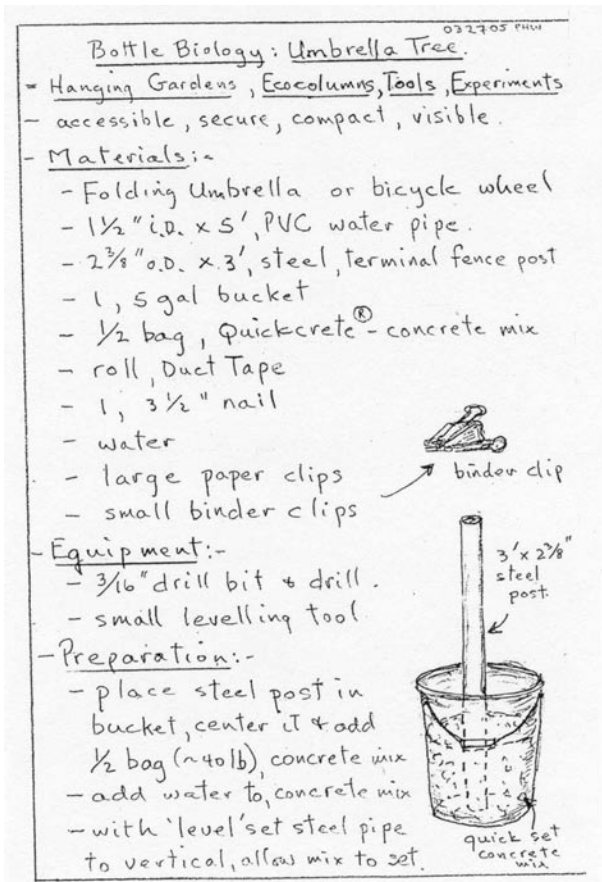 032705 PHW
Bottle Biology: Umbrella Tree.
- Hanging Gardens, Ecocolumns, Tools, Experiments
- accessible, secure, compact, visible.
- Materials:-
- Folding Umbrella or bicycle wheel
- 1½" i.D. x 5', PVC water pipe.
- 2⅜" o.D. x 3', steel, terminal fence post
- 1, 5 gal bucket
- ½ bag, Quickcrete® - concrete mix
- roll, Duct Tape
- 1, 3½" nail
- water
- large paper clips
- small binder clips
binder clip
- Equipment:-
- 3/16" drill bit & drill.
- small levelling tool
- Preparation:-
- place steel post in
bucket, center it & add
½ bag (~40 lb), concrete mix
- add water to, concrete mix
- with 'level' set steel pipe
to vertical, allow mix to set.
3' x 2⅜"
steel
post.
quick set
concrete
mix